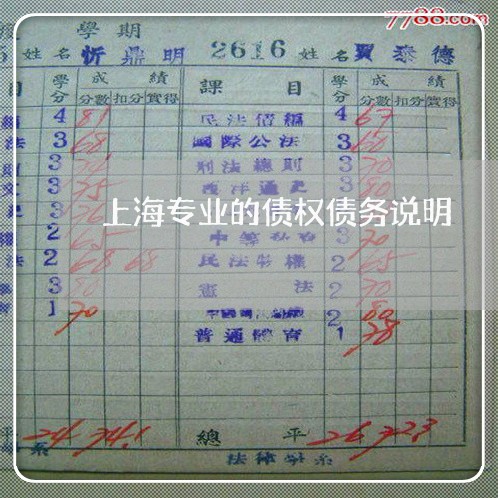 7788.com
學期
姓名 忻鼎明 2616 姓名 賈泰德
目 學分 成績 課目 學分 成績
分數 扣分 實得 分數 扣分 實得
4 81 民法債編 4 67
法 3 68 國際公法 3 60
3 刑法總則 3 70
3 75 西洋通史 3 80
上海专业的债权债务说明
2 65 3 70
法 2 68 68 民法物權 2 65
3 80 憲法 2 70
1 70 2 80
普通體育 1 78
平 24 74.1 總平 26 72.3
系 法律學系